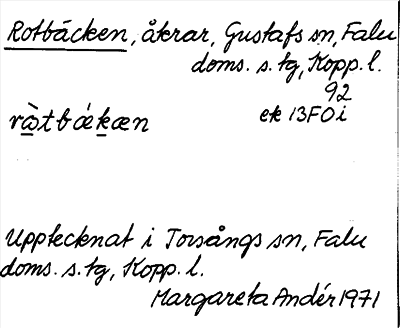 Rotbäcken, åkrar, Gustafs sn, Falu
doms. s. tg, Kopp. l.
92
ek 13FOi
ràtbákæn
Upptecknat i Torsångs sn, Falu
doms. s. tg, Kopp. l.
Margareta Andér 1971